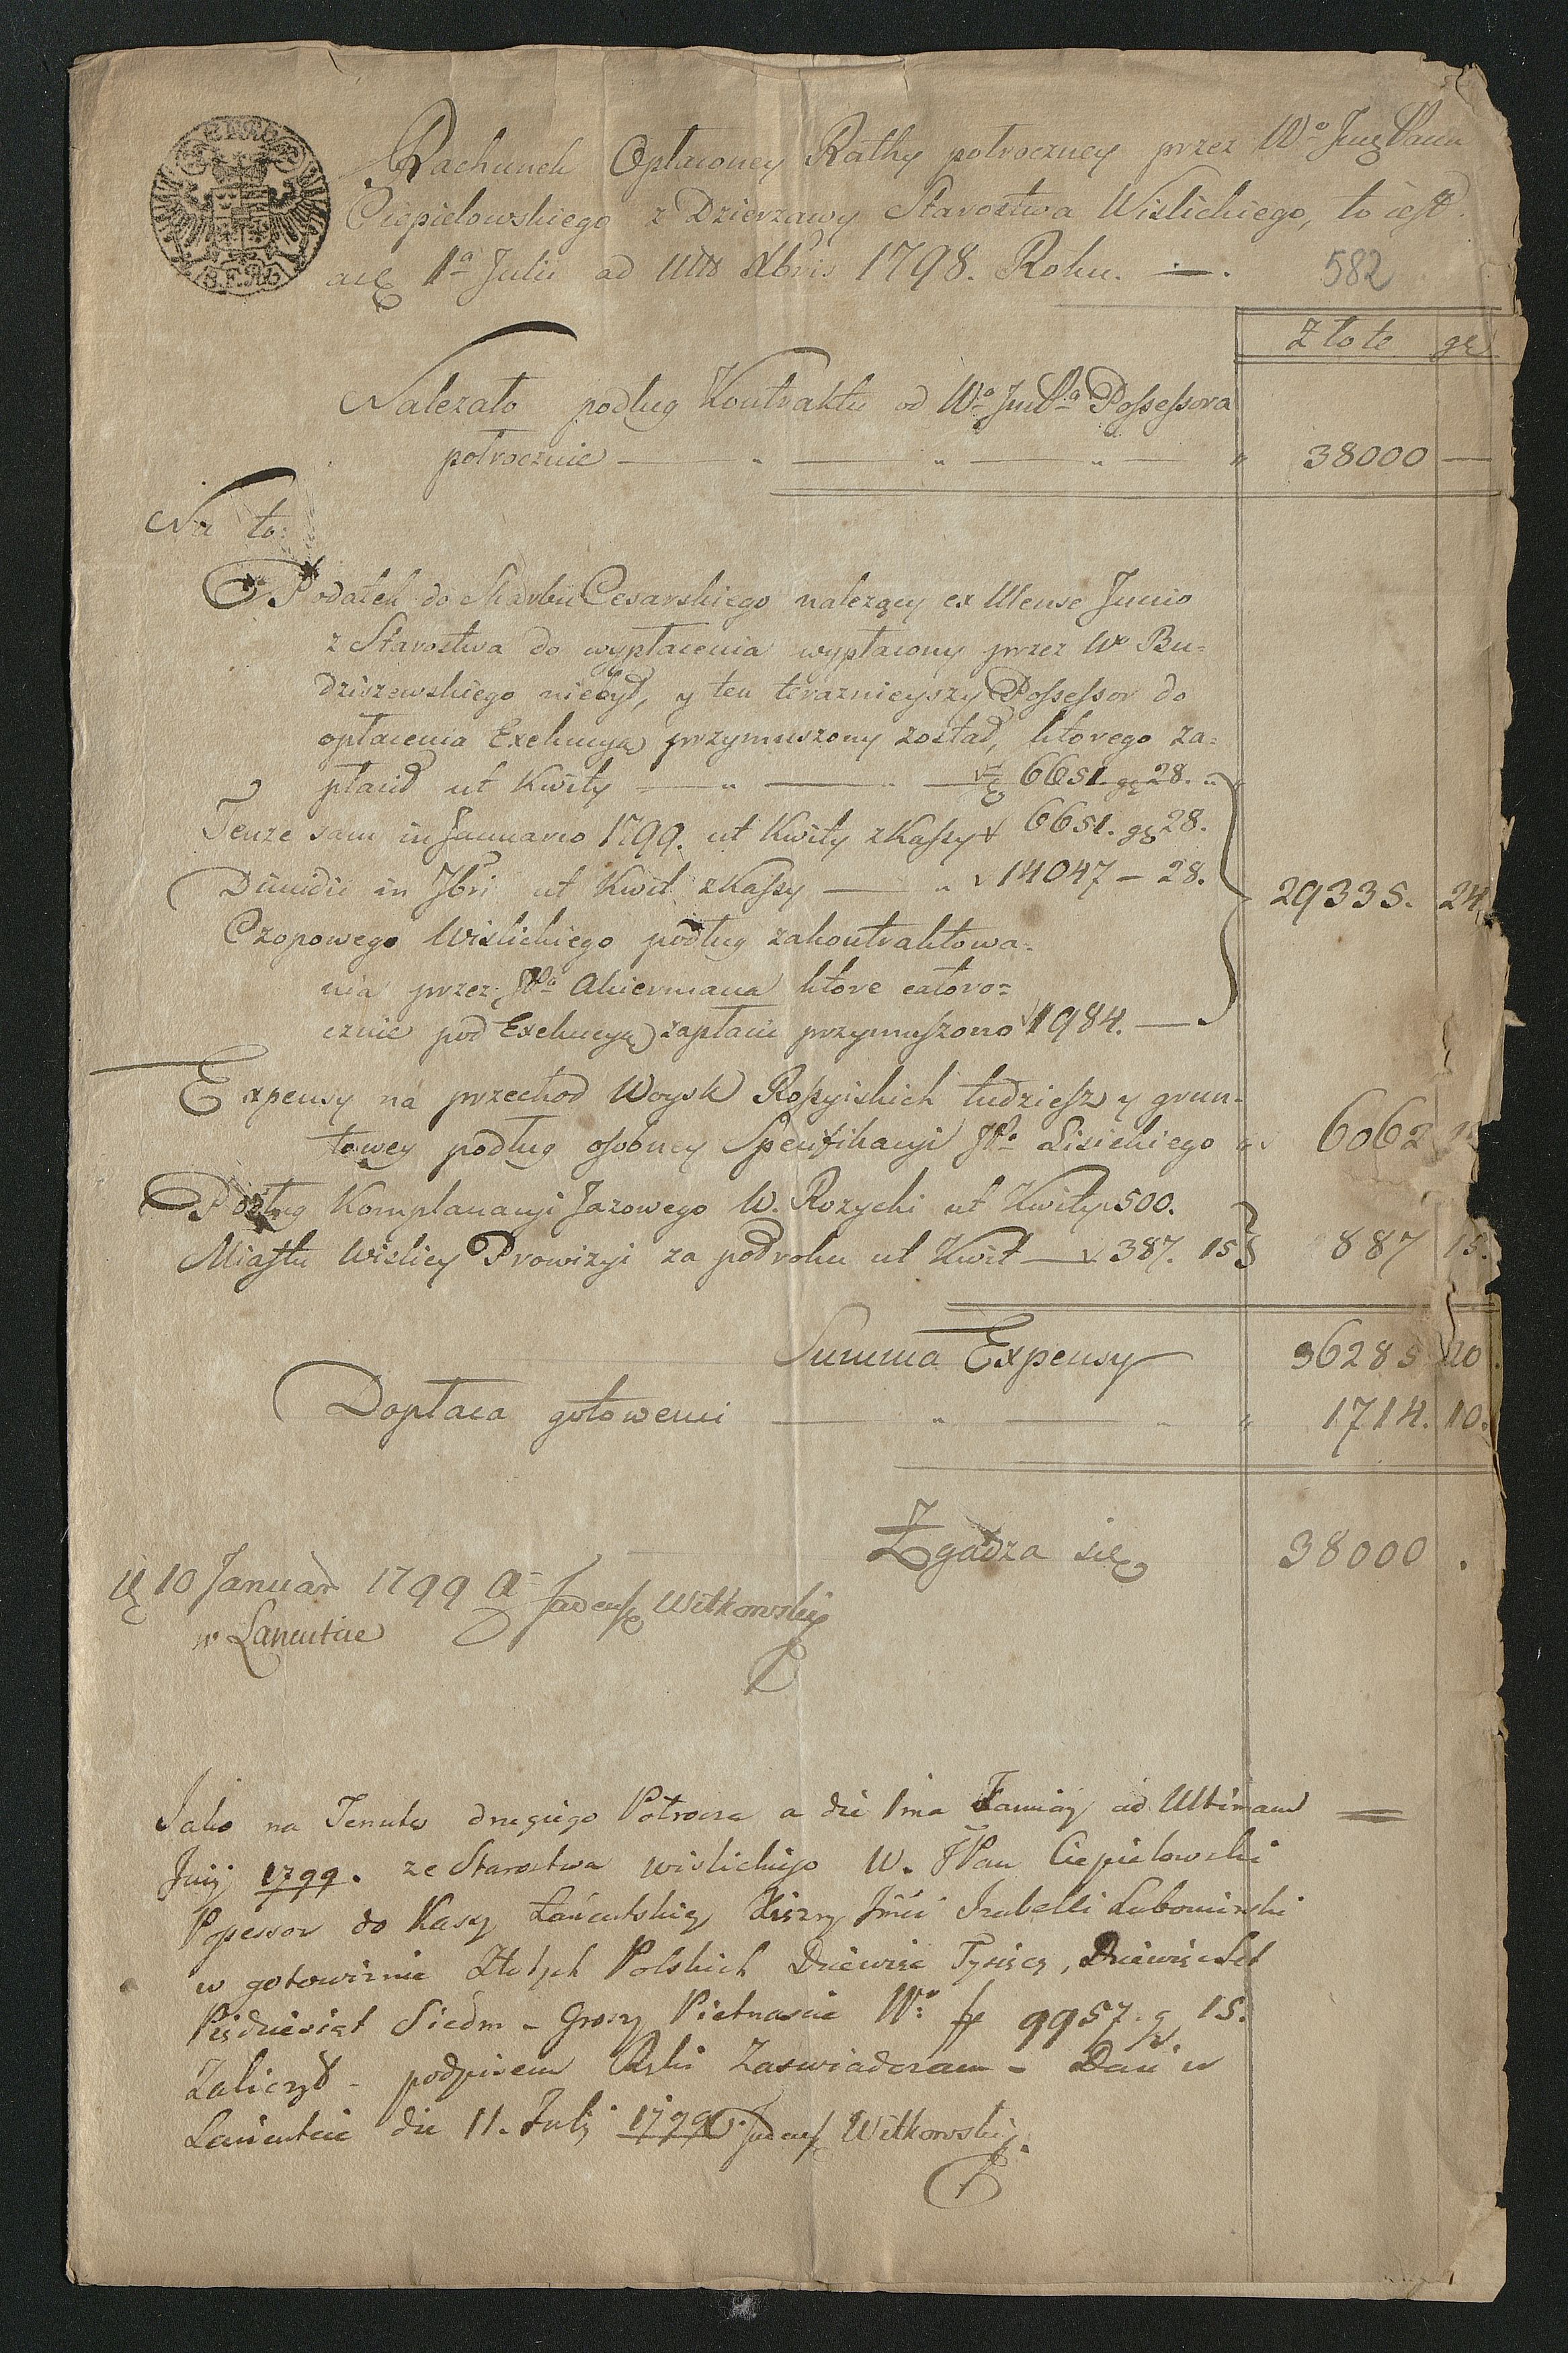 Rachunek Opłaconey Rathy połroczney przez Wo Jmę Pana
Ciepielowskiego z Dzierzawy Starostwa Wislickiego, to iest
a 1a Julii ad Xbris 1798. Roku. —.
582
Złote gr
Nalezało podług Kontraktu od Wo Jm Pa Possessora
połrocznie — " — " — " — " 38000 —
Na to:
Podatek do Skarbu Cesarskiego nalezący ex Mense Junio
z Starostwa do wypłacenia wypłacony przez Wo Bu=
dziszewskiego niebył, y ten teraznieyszy Possessor do
opłacenia Exekucyą przymuszony został, ktorego za=
płacił ut Kwity — " — " — 6651. gr 28.
Tenze sam in Januario 1799. ut Kwity z Kassy 6651. gr 28.
Dimidii in Jbri ut Kwit z Kassy — " 14047 — 28. 29335. 24
Czopowego Wislickiego podług zakontraktowa=
nia przez JPa Akiermana ktore całoro=
cznie pod Exekucyą zapłacic przymuszono 1984. —
Expensy na przechod Woysk Rossyiskich tudziesz y grun=
towey podług osobney Specifikacyi JPa Lisickiego " 6062
Podług Komplanacyi Jazowego W. Rozycki ut Kwity 500.
Miastu Wislicy Prowizyi za poł roku ut Kwit — 387. 15 887 15.
Summa Expensy " 36285 20
Dopłaca gotowemi — " — " — " 1714. 10.
Zgadza się 38000 .
10 Januar 1799 Tadeusz Witkowski
w Lancucie
Jako na Tenutę drugiego Połrocza a die 1ma ad Ultimam
Junij 1799. ze Starostwa wislickiego W. JPan Ciepielowski
Possessor do Kasy Łańcutskiey Xiężny Jmci Izabelli Lubomirski
w gotowiznie Złotych Polskich Dziewięc Tysięcy, Dziewięcset
Pięcdziesiąt Siedm – Groszy Pietnascie No: fp 9957. g 15.
Zaliczył – podpisem Ręki Zaswiadczam – Dań w
Łańcutcie die 11. Julij 1799. Tadeusz Witkowski.